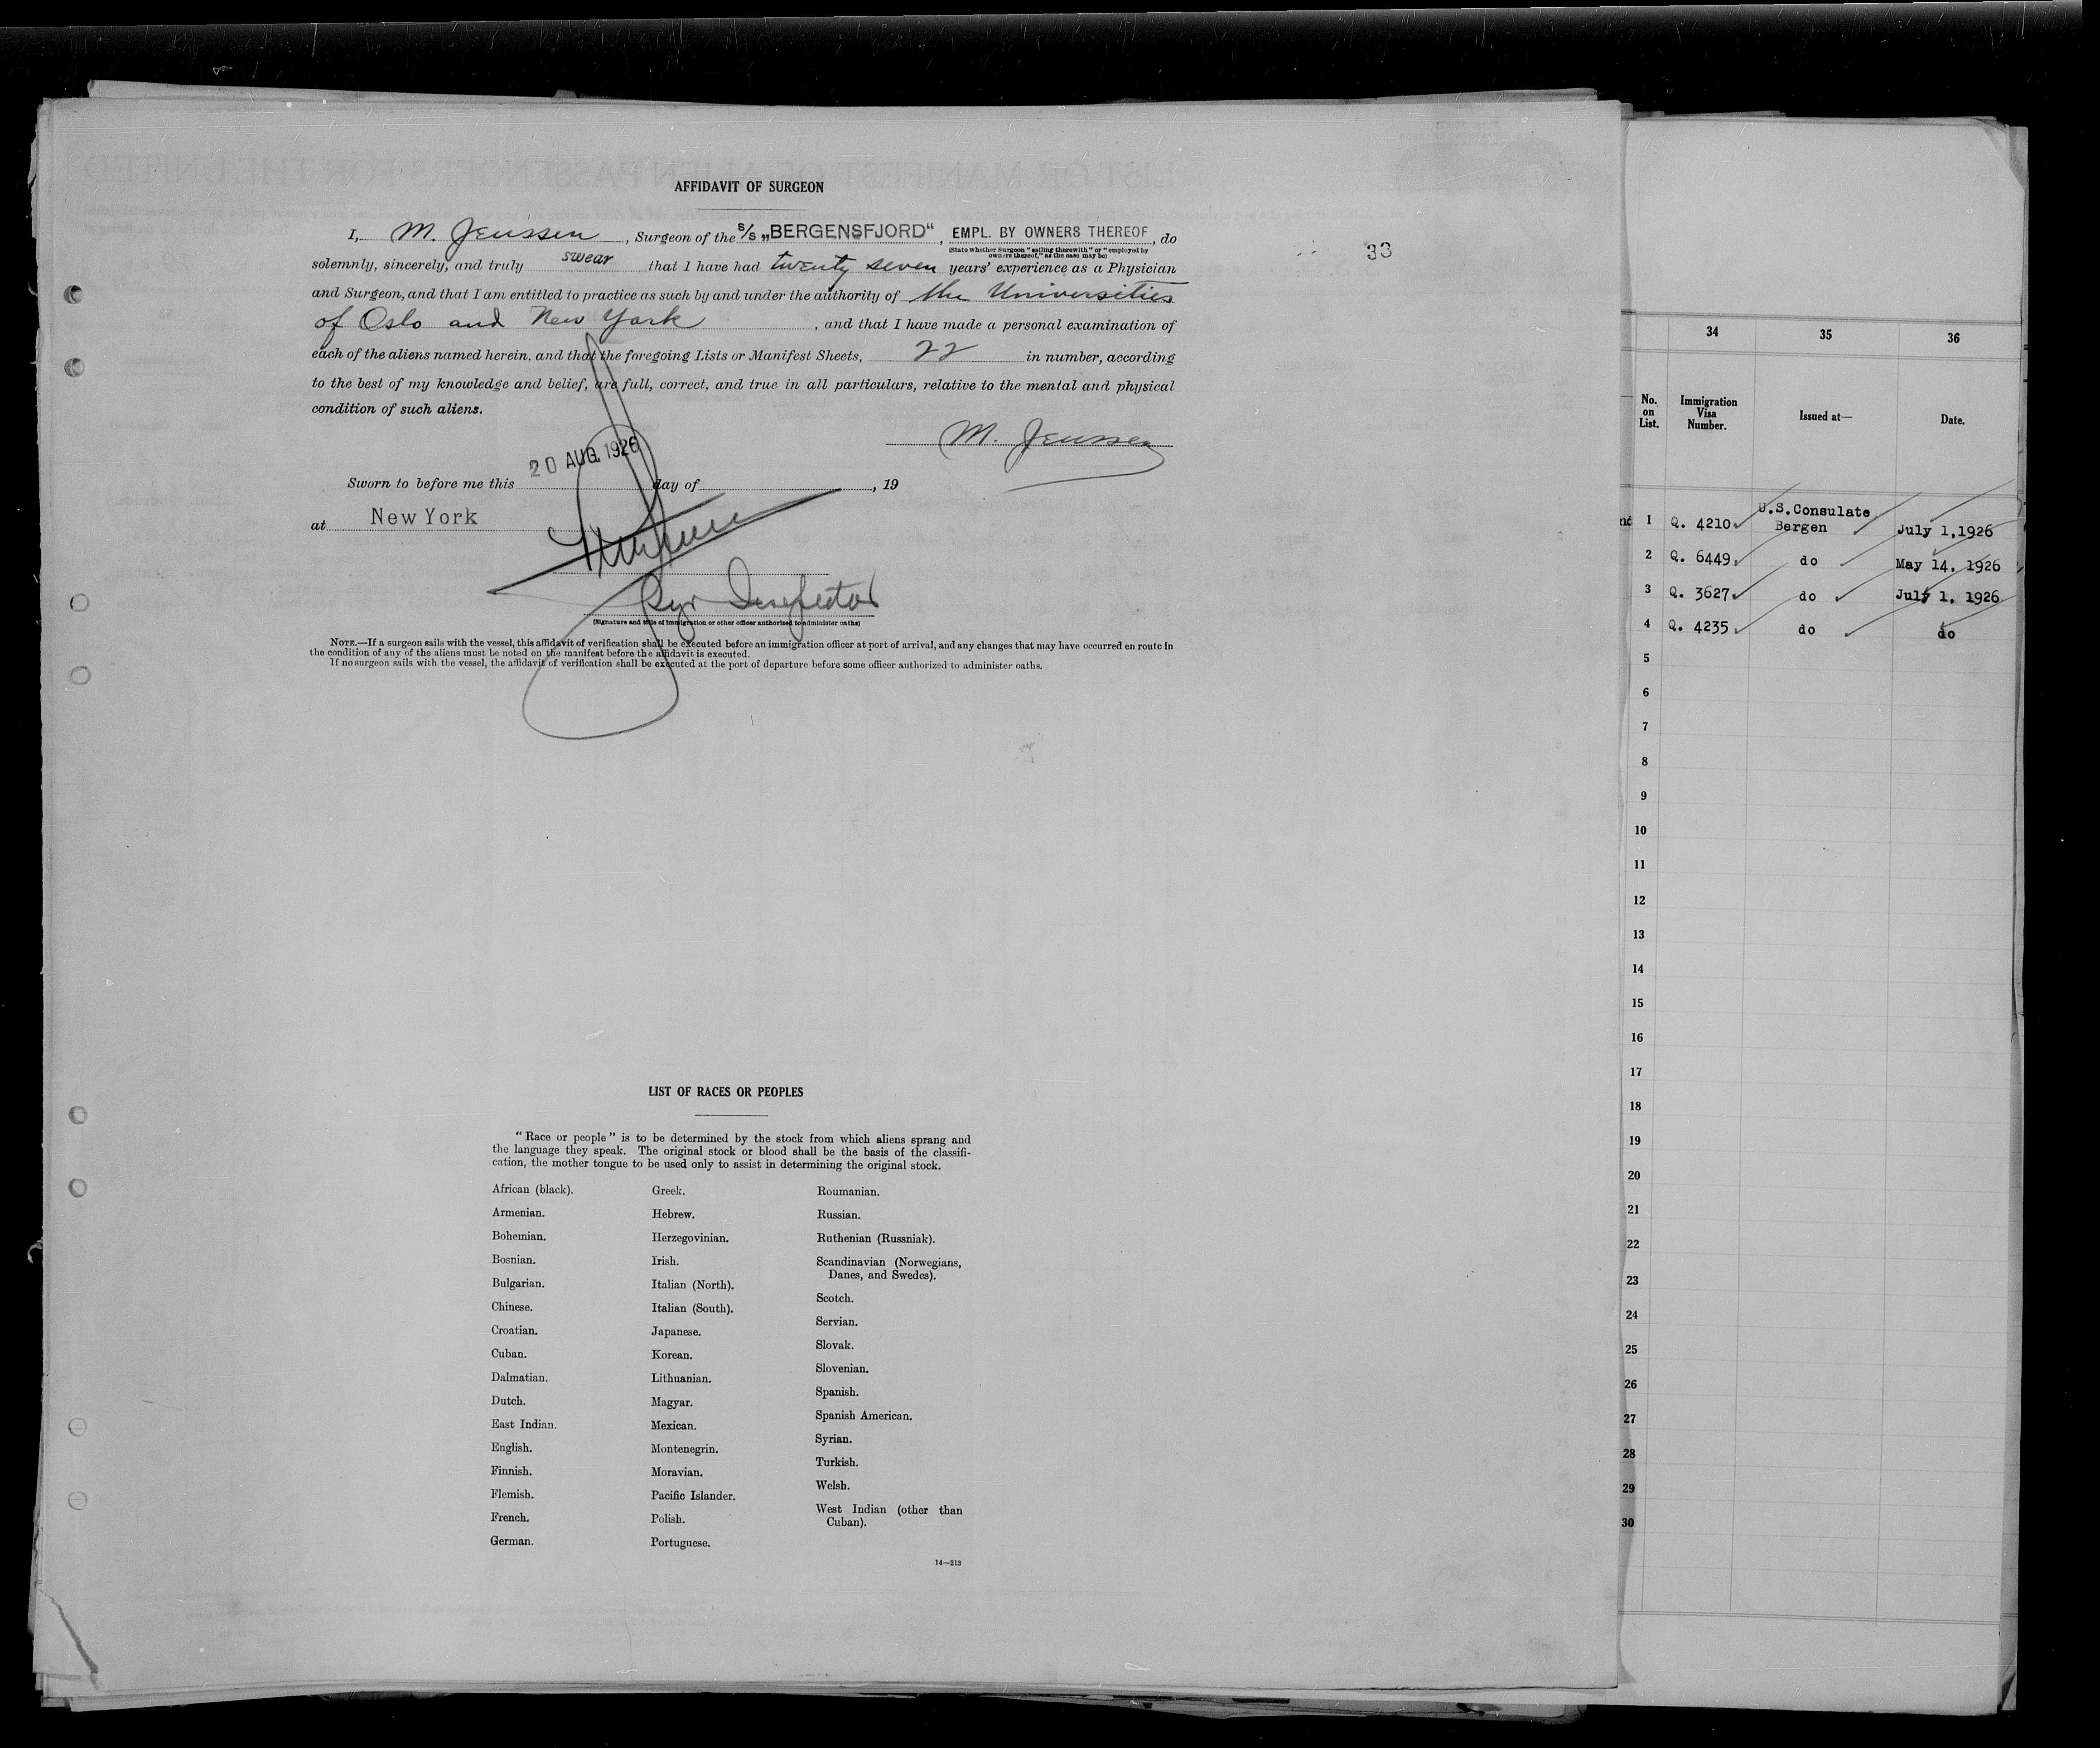 AFFIDAVIT OF SURGEON
I, M. Jenssen, Surgeon of the S/S „BERGENSFJORD“, EMPL. BY OWNERS THEREOF, do
(State whether Surgeon "sailing therewith" or "employed by
owners thereof," as the case may be)
solemnly, sincerely, and truly swear that I have had twenty seven years' experience as a Physician
and Surgeon, and that I am entitled to practice as such by and under the authority of the Universities
of Oslo and New York, and that I have made a personal examination of
each of the aliens named herein, and that the foregoing Lists or Manifest Sheets, 22 in number, according
to the best of my knowledge and belief, are full, correct, and true in all particulars, relative to the mental and physical
condition of such aliens.
M. Jenssen
20 AUG. 1926
Sworn to before me this day of , 19
at New York
Inspector
(Signature and title of immigration or other officer authorized to administer oaths)
NOTE.—If a surgeon sails with the vessel, this affidavit of verification shall be executed before an immigration officer at port of arrival, and any changes that may have occurred en route in
the condition of any of the aliens must be noted on the manifest before the affidavit is executed.
If no surgeon sails with the vessel, the affidavit of verification shall be executed at the port of departure before some officer authorized to administer oaths.
33
LIST OF RACES OR PEOPLES
"Race or people" is to be determined by the stock from which aliens sprang and
the language they speak. The original stock or blood shall be the basis of the classifi-
cation, the mother tongue to be used only to assist in determining the original stock.
African (black).
Armenian.
Bohemian.
Bosnian.
Bulgarian.
Chinese.
Croatian.
Cuban.
Dalmatian.
Dutch.
East Indian.
English.
Finnish.
Flemish.
French.
German.
Greek.
Hebrew.
Herzegovinian.
Irish.
Italian (North).
Italian (South).
Japanese.
Korean.
Lithuanian.
Magyar.
Mexican.
Montenegrin.
Moravian.
Pacific Islander.
Polish.
Portuguese.
Roumanian.
Russian.
Ruthenian (Russniak).
Scandinavian (Norwegians,
Danes, and Swedes).
Scotch.
Servian.
Slovak.
Slovenian.
Spanish.
Spanish American.
Syrian.
Turkish.
Welsh.
West Indian (other than
Cuban).
14—213
34 35 36
No. on List. Immigration Visa Number. Issued at— Date.
1 Q. 4210 U.S.Consulate Bergen July 1,1926
2 Q. 6449 do May 14, 1926
3 Q. 3627 do July 1, 1926
4 Q. 4235 do do
5
6
7
8
9
10
11
12
13
14
15
16
17
18
19
20
21
22
23
24
25
26
27
28
29
30